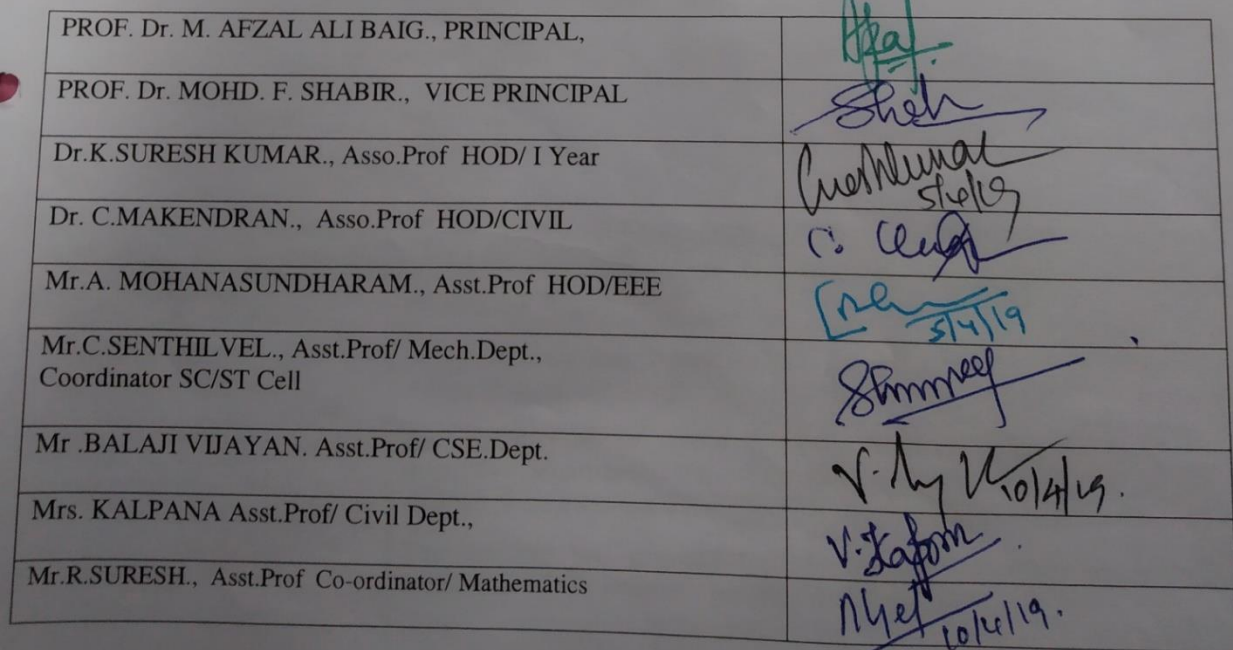 PROF. Dr. M. AFZAL ALI BAIG., PRINCIPAL,
PROF. Dr. MOHD. F. SHABIR., VICE PRINCIPAL
Dr.K.SURESH KUMAR., Asso.Prof HOD/ I Year
5/4/19
Dr. C.MAKENDRAN., Asso.Prof HOD/CIVIL
Mr.A. MOHANASUNDHARAM., Asst.Prof HOD/EEE
5/4/19
Mr.C.SENTHILVEL., Asst.Prof/ Mech.Dept.,
Coordinator SC/ST Cell
Mr .BALAJI VIJAYAN. Asst.Prof/ CSE.Dept.
10/4/19.
Mrs. KALPANA Asst.Prof/ Civil Dept.,
Mr.R.SURESH., Asst.Prof Co-ordinator/ Mathematics
10/4/19.